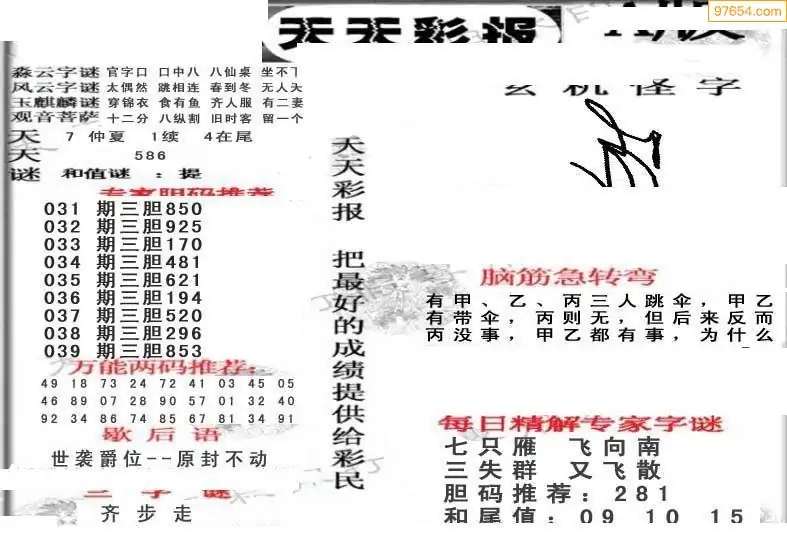 97654.com
天天彩报
淼云字谜 官字口 口中八 八仙桌 坐不下
风云字谜 太偶然 跳相连 春到冬 无人头
玉麒麟谜 穿锦衣 食有鱼 齐人服 有二妻
观音菩萨 十二分 八纵割 旧时客 留一个
天 7 仲夏 1续 4在尾
天 586
谜 和值谜 : 提
专家胆码推荐
031 期三胆850
032 期三胆925
033 期三胆170
034 期三胆481
035 期三胆621
036 期三胆194
037 期三胆520
038 期三胆296
039 期三胆853
万能两码推荐:
49 18 73 24 72 41 03 45 05
46 89 07 28 90 57 01 32 40
92 34 86 74 85 67 81 34 91
歇后语
世袭爵位--原封不动
三字谜
齐步走
天天彩报 把最好的成绩提供给彩民
玄机怪字
脑筋急转弯
有甲、乙、丙三人跳伞，甲乙
有带伞，丙则无，但后来反而
丙没事，甲乙都有事，为什么
每日精解专家字谜
七只雁 飞向南
三失群 又飞散
胆码推荐: 281
和尾值: 09 10 15